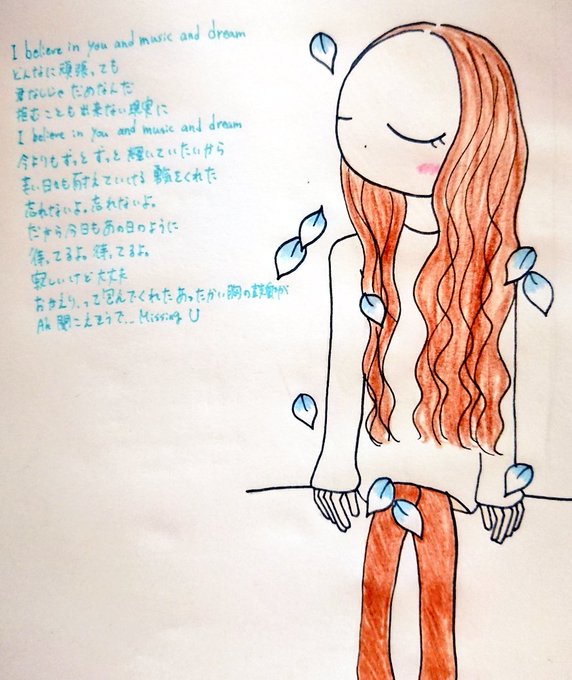 I believe in you and music and dream
どんなに頑張っても
君なしじゃだめなんだ
拒むことも出来ない現実に
I believe in you and music and dream
今よりもずっとずっと輝いていたいから
辛い日々も耐えていける 勇気をくれた
忘れないよ。忘れないよ。
だから今日もあの日のように
待ってるよ。待ってるよ。
寂しいけど大丈夫
おかえり、って包んでくれたあったかい胸の鼓動が
Ah 聞こえそうで... Missing U